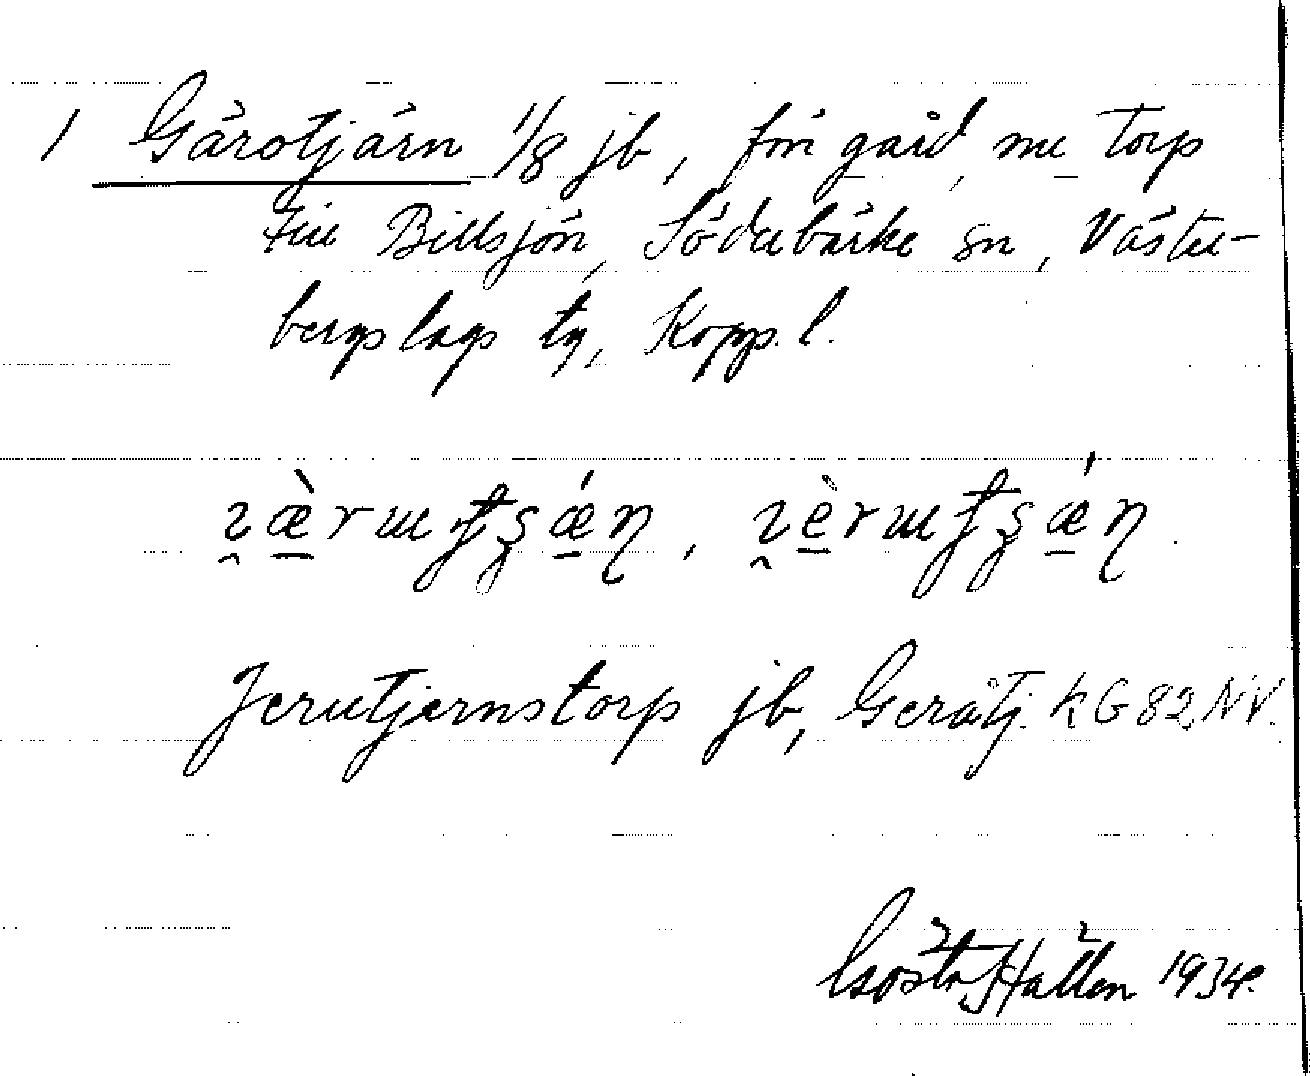 1 Gärotjärn 1/8 jb, förr gård, nu torp
till Billsjön, Söderbärke sn, Väster-
bergslags tg, Kopp. l.
Jerutjernstorp jb, Geråtj. KG 82 NV.
Gösta Hallén 1934.